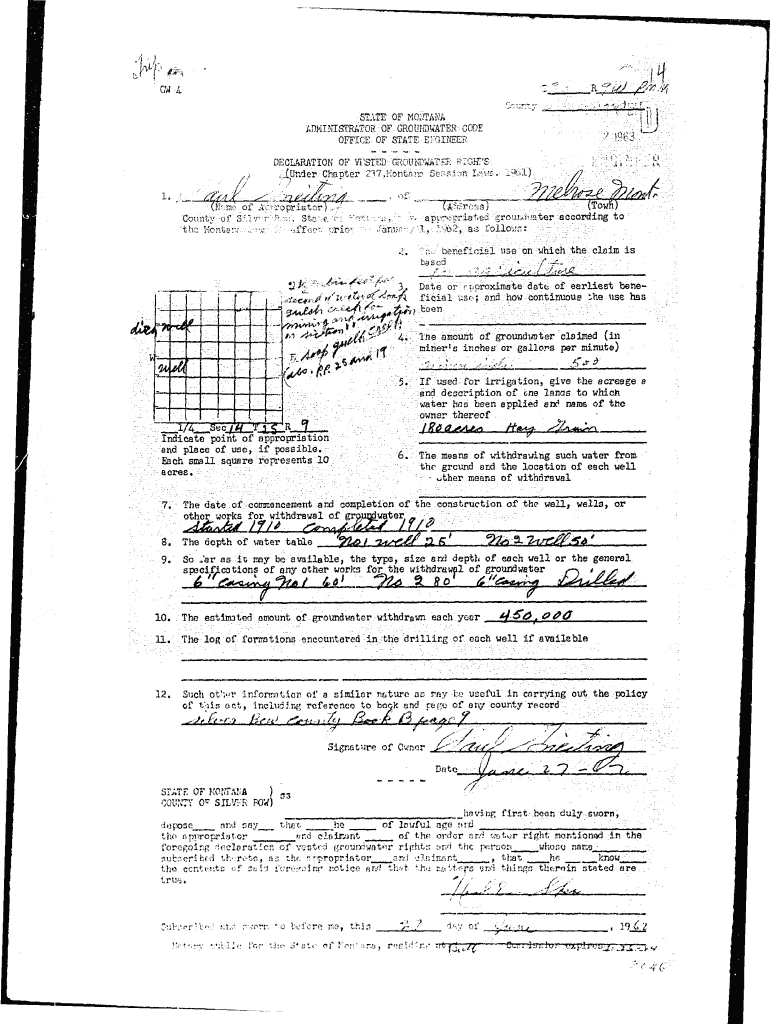 14
GW 4
R 9W
County
STATE OF MONTANA
ADMINISTRATOR OF GROUNDWATER CODE
OFFICE OF STATE ENGINEER
2 1963
DECLARATION OF VESTED GROUNDWATER RIGHTS
(Under Chapter 237, Montana Session Laws, 1961)
1. Paul of Melrose Mont.
(Name of Appropriator) (Address) (Town)
County of Silver Bow, State of Montana, appropriated groundwater according to
the Montana effect prior January 1, 1962, as follows:
2. The beneficial use on which the claim is
based
agriculture
3. Date or approximate date of earliest bene-
ficial use; and how continuous the use has
been
second of water of Soap
gulch creek for
mining and irrigation
on section
E. Soap gulch Creek
(abs. P.P. 25 and 19
well
W
well
4. The amount of groundwater claimed (in
miner's inches or gallons per minute)
500
5. If used for irrigation, give the acreage a
and description of the lands to which
water has been applied and name of the
owner thereof
180 acres Hay Grain
1/4 Sec 14 T 2S R 9
Indicate point of appropriation
and place of use, if possible.
Each small square represents 10
acres.
6. The means of withdrawing such water from
the ground and the location of each well
other means of withdrawal
7. The date of commencement and completion of the construction of the well, wells, or
other works for withdrawal of groundwater
Started 1910 Completed 1910
8. The depth of water table No 1 well 25' No 2 well 50'
9. So far as it may be available, the type, size and depth of each well or the general
specifications of any other works for the withdrawal of groundwater
6" casing No 1 60' No 2 80' 6" casing Drilled
10. The estimated amount of groundwater withdrawn each year 450,000
11. The log of formations encountered in the drilling of each well if available
12. Such other information of a similar nature as may be useful in carrying out the policy
of this act, including reference to book and page of any county record
Silver Bow County Book B page 9
Signature of Owner Paul
Date June 27-62
STATE OF MONTANA )
COUNTY OF SILVER BOW) SS
having first been duly sworn,
depose and say that he of lawful age and
the appropriator and claimant of the order and water right mentioned in the
foregoing declaration of vested groundwater rights and the person whose name
subscribed thereto, as the appropriator and claimant, that he know
the contents of said foregoing notice and that the matters and things therein stated are
true.
Subscribed and sworn to before me, this 27 day of June, 1962
Notary public for the State of Montana, residing at Commission expires